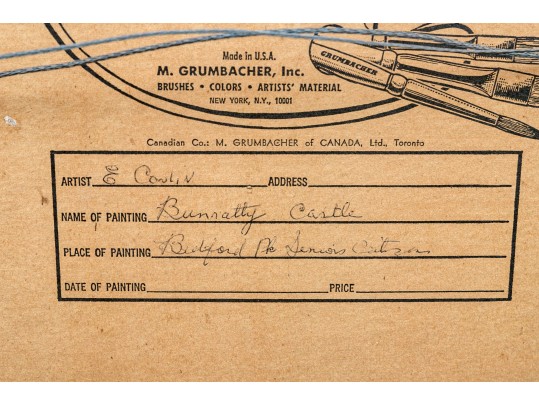 Made in U.S.A.
M. GRUMBACHER, Inc.
BRUSHES • COLORS • ARTISTS' MATERIAL
NEW YORK, N.Y., 10001
GRUMBACHER
Canadian Co.: M. GRUMBACHER of CANADA, Ltd., Toronto
ARTIST E Conlin ADDRESS
NAME OF PAINTING Bunratty Castle
PLACE OF PAINTING Bedford Pk Seniors Citizen
DATE OF PAINTING PRICE